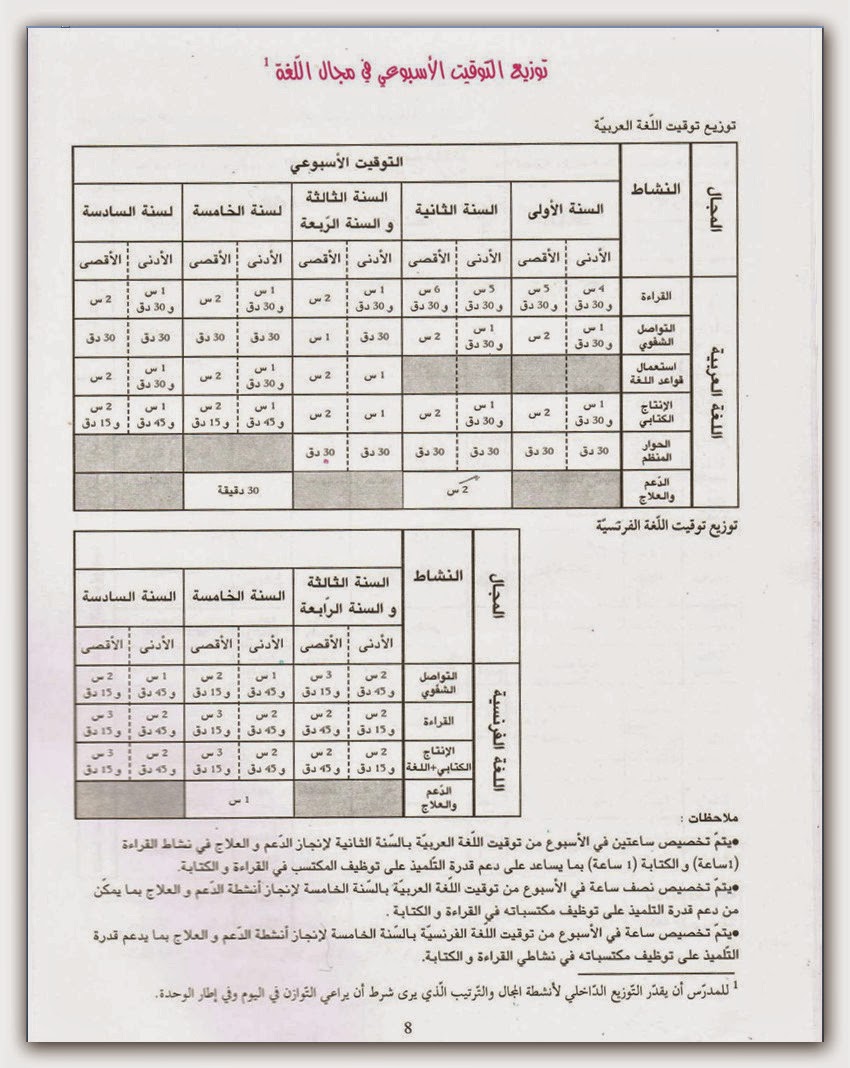 توزيع التوقيت الأسبوعي في مجال اللّغة 1
توزيع توقيت اللّغة العربيّة
المجال النشاط التوقيت الأسبوعي
السنة الأولى السنة الثانية السنة الثالثة و السنة الرّبعة لسنة الخامسة لسنة السادسة
الأدنى الأقصى الأدنى الأقصى الأدنى الأقصى الأدنى الأقصى الأدنى الأقصى
اللغة العربية
القراءة 4 س و 30 دق 5 س و 30 دق 5 س و 30 دق 6 س و 30 دق 1 س و 30 دق 2 س 1 س و 30 دق 2 س 1 س و 30 دق 2 س
التواصل الشفوي 1 س و 30 دق 2 س 1 س و 30 دق 2 س 30 دق 1 س 30 دق 30 دق 30 دق 30 دق
استعمال قواعد اللغة 1 س 2 س 1 س و 30 دق 2 س 1 س و 30 دق 2 س
الإنتاج الكتابي 1 س و 30 دق 2 س 1 س و 30 دق 2 س 1 س 2 س 1 س و 45 دق 2 س و 15 دق 1 س و 45 دق 2 س و 15 دق
الحوار المنظم 30 دق 30 دق 30 دق 30 دق 30 دق 30 دق
الدّعم والعلاج 2 س 30 دقيقة
توزيع توقيت اللّغة الفرنسيّة
المجال النشاط
السنة الثالثة و السنة الرّابعة السنة الخامسة السنة السادسة
الأدنى الأقصى الأدنى الأقصى الأدنى الأقصى
اللغة الفرنسية
التواصل الشفوي 2 س و 45 دق 3 س و 15 دق 1 س و 45 دق 2 س و 15 دق 1 س و 45 دق 2 س و 15 دق
القراءة 2 س و 15 دق 2 س و 45 دق 2 س و 45 دق 3 س و 15 دق 2 س و 45 دق 3 س و 15 دق
الإنتاج الكتابي+اللغة 2 س و 15 دق 2 س و 45 دق 2 س و 45 دق 3 س و 15 دق 2 س و 45 دق 3 س و 15 دق
الدّعم والعلاج 1 س
ملاحظات :
●يتمّ تخصيص ساعتين في الأسبوع من توقيت اللّغة العربيّة بالسّنة الثانية لإنجاز الدّعم و العلاج في نشاط القراءة
(1ساعة) و الكتابة (1 ساعة) بما يساعد على دعم قدرة التّلميذ على توظيف المكتسب في القراءة و الكتابة.
●يتمّ تخصيص نصف ساعة في الأسبوع من توقيت اللّغة العربيّة بالسّنة الخامسة لإنجاز أنشطة الدّعم و العلاج بما يمكّن
من دعم قدرة التلميذ على توظيف مكتسباته في القراءة و الكتابة .
●يتمّ تخصيص ساعة في الأسبوع من توقيت اللّغة الفرنسيّة بالسّنة الخامسة لإنجاز أنشطة الدّعم و العلاج بما يدعم قدرة
التّلميذ على توظيف مكتسباته في نشاطي القراءة و الكتابة.
1 للمدرّس أن يقدّر التّوزيع الدّاخلي لأنشطة المجال والتّرتيب الّذي يرى شرط أن يراعي التّوازن في اليوم وفي إطار الوحدة.
8